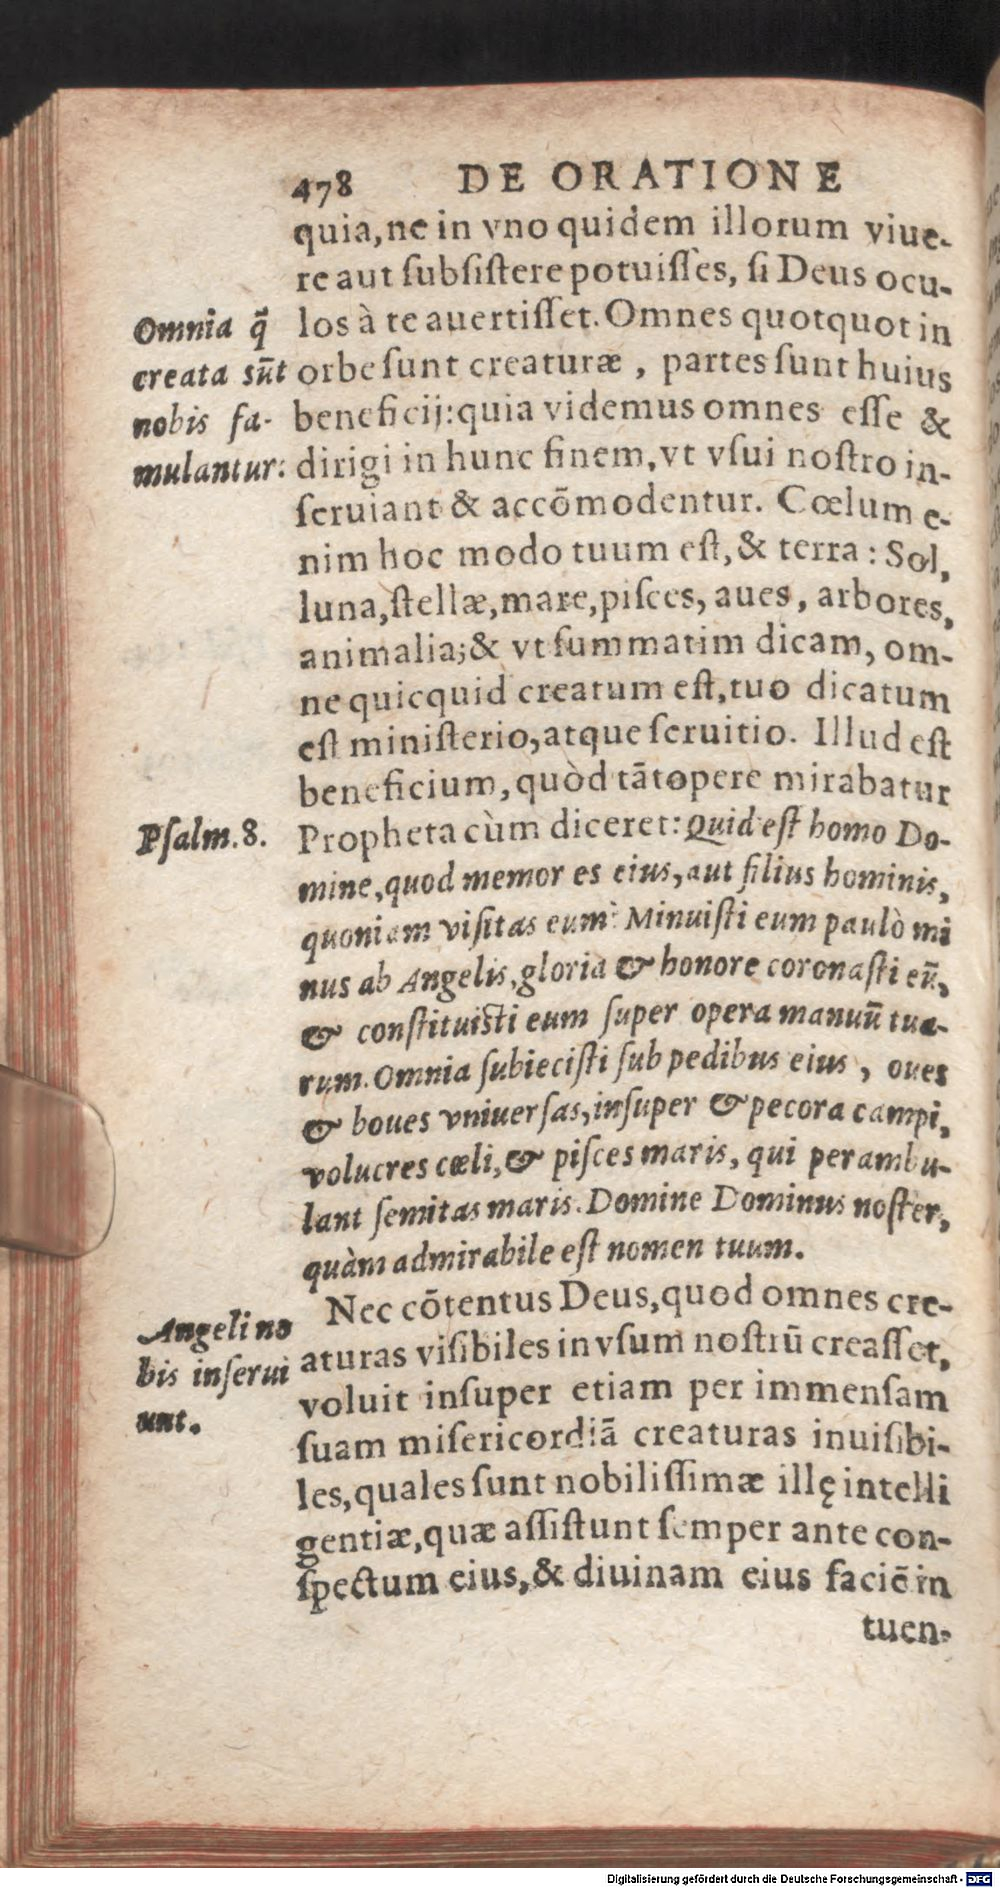 478 DE ORATIONE
quia, ne in vno quidem illorum viue-
re aut ſubſiſtere potuiſſes, ſi Deus ocu-
los à te auertiſſet. Omnes quotquot in
orbe ſunt creaturæ, partes ſunt huius
beneficij: quia videmus omnes eſſe &
dirigi in hunc finem, vt vſui noſtro in-
ſeruiant & accōmodentur. Cœlum e-
nim hoc modo tuum eſt, & terra: Sol,
luna, ſtellæ, mare, piſces, aues, arbores,
animalia; & vt ſummatim dicam, om-
ne quicquid creatum eſt, tuo dicatum
eſt miniſterio, atque ſeruitio. Illud eſt
beneficium, quòd tātopere mirabatur
Propheta cùm diceret: Quid eſt homo Do-
mine, quod memor es eius, aut filius hominis,
quoniam viſitas eum? Minuiſti eum paulò mi
nus ab Angelis, gloria & honore coronaſti eū,
& conſtituiſti eum ſuper opera manuū tua-
rum. Omnia ſubieciſti ſub pedibus eius, oues
& boues vniuerſas, inſuper & pecora campi,
volucres cœli, & piſces maris, qui perambu-
lant ſemitas maris. Domine Dominus noſter,
quàm admirabile eſt nomen tuum.
Nec cōtentus Deus, quod omnes cre-
aturas viſibiles in vſum noſtrū creaſſet,
voluit inſuper etiam per immenſam
ſuam miſericordiā creaturas inuiſibi-
les, quales ſunt nobiliſſimæ illę intelli
gentiæ, quæ aſſiſtunt ſemper ante con-
ſpectum eius, & diuinam eius faciē in
tuen-
Omnia q̄
creata sūt
nobis fa-
mulantur:
Pſalm. 8.
Angeli no
bis inſerui
unt.
Digitalisierung gefördert durch die Deutsche Forschungsgemeinschaft - DFG